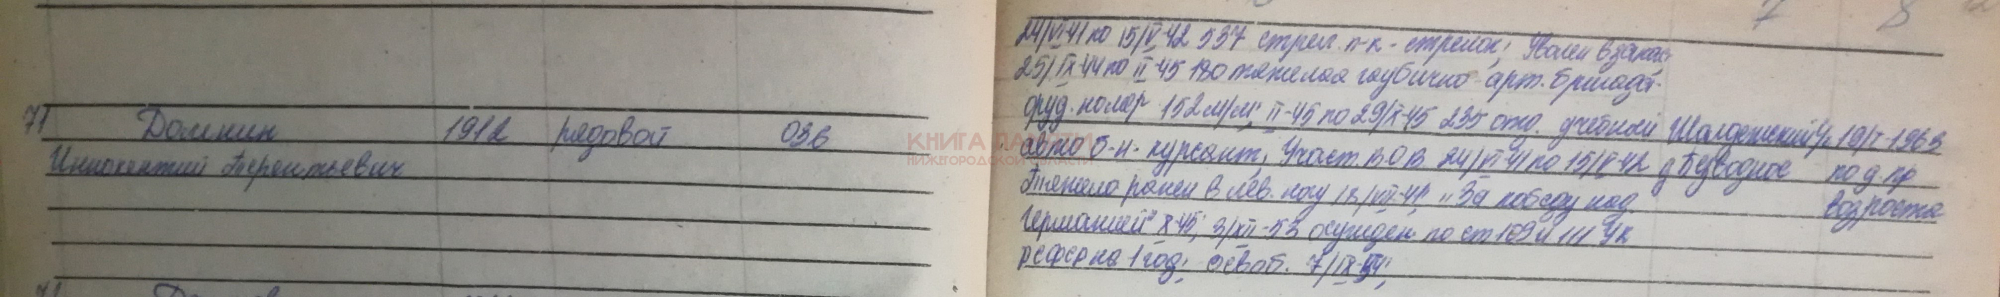 7 8
24/VI-41 по 15/V-42 537 стрел. п-к - стрелок;
25/IX-44 по II-45 180 тяжелая гаубично-арт. бригада
71 Домнин 1912 рядовой ОЗВ
оруд. номер 152 м/м; II-45 по 29/X-45 235 отд. учебный Шалдежский с/с 10/I-1963
КНИГА ПАМЯТИ
НИЖЕГОРОДСКОЙ ОБЛАСТИ
Иннокентий Терентьевич
авто б-н - курсант, Участ. В.О.В. 24/VI-41 по 15/V-42 д Безводное по д. пр
Тяжело ранен в лев. ногу /VIII-41 "За победу над возраста
Германией" X-45; 3/XII-53 осужден по ст 109 и 111 УК
РСФСР на 1 год; освоб. 7/IX-54;